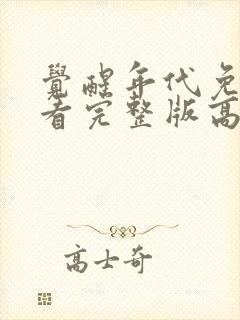 覺醒年代免
看完整版高
高士奇